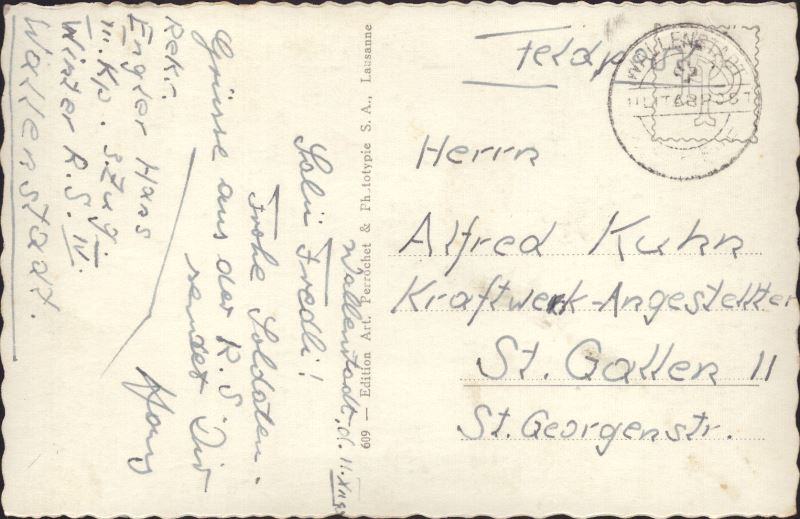 Feldpost
WALLENSTADT
MILITÄRPOST
Herrn
Alfred Kuhn
Kraftwerk-Angestellter
St. Gallen 11
St. Georgenstr.
609 — Edition Art. Perrochet & Phototypie S. A., Lausanne
Wallenstadt, d. 11.
Salü Fredli!
Frohe Soldaten-
Grüsse aus der R.S.
sendet Dir
Hans
Rekr.
Engler Hans
III. Kp. 3. Zug.
Winter R.S. IV.
Wallenstadt.